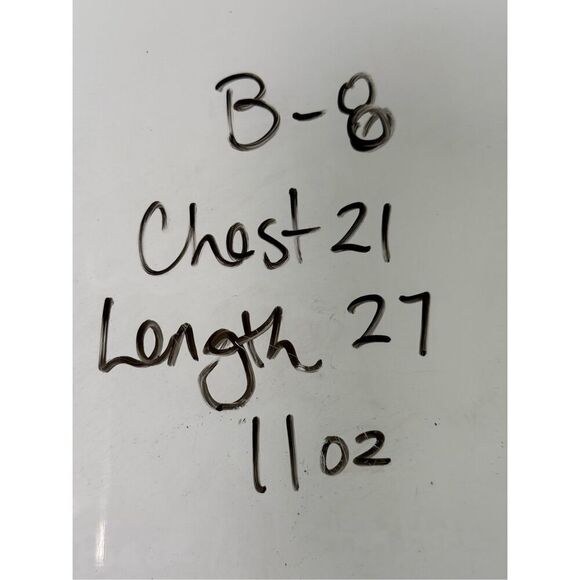 B-8
Chest 21
Length 27
11oz